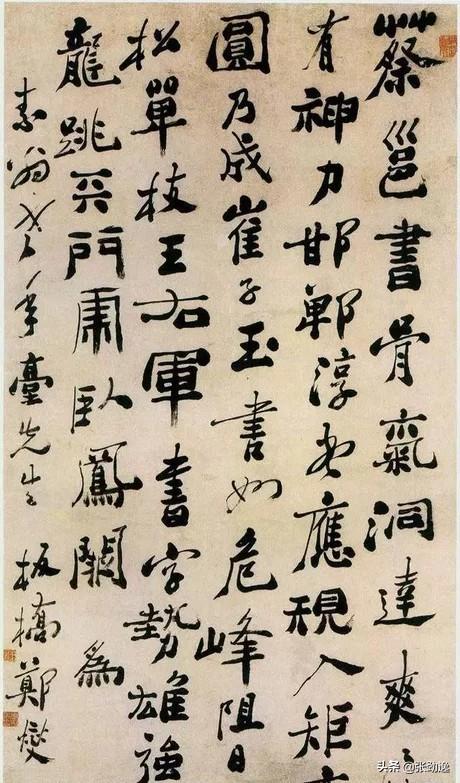 蔡邕書骨氣洞達爽
有神力邯鄲淳書應規入矩
圓乃成崔子玉書如危峰阻日
松單枝王右軍書字勢雄強
龍跳天門虎臥鳳闕為
素翁老年臺先生 板橋鄭燮
头条 @张劲逸